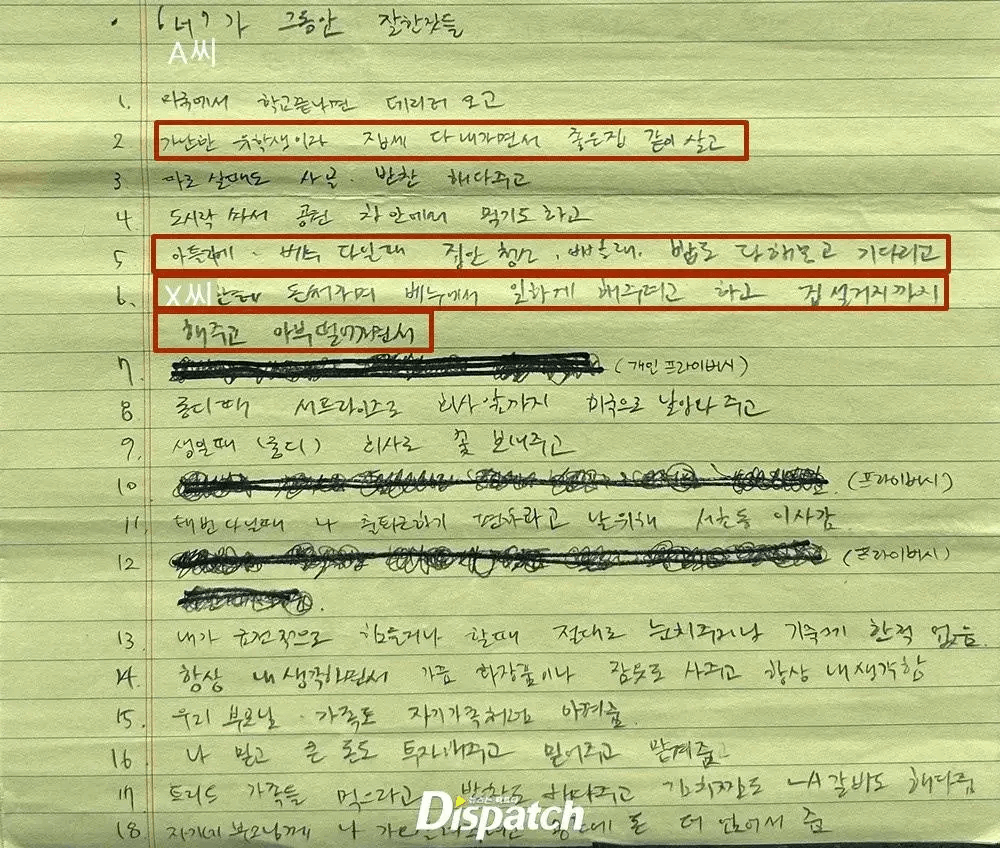 • '너'가 그동안 잘한짓들
A씨
1. 미국에서 학교끝나면 데리러 오고
2 가난한 유학생이라 집세 다 내가면서 좋은집 같이 살고
3 따로 살때도 사골. 반찬 해다주고
4 도시락 싸서 공원 차 안에서 먹기도 하고
5 다닐때 집안 청소, 빨래, 밥도 다해놓고 기다리고
6. X씨한테 돈써가며 에서 일하게 해주려고 하고 집 설거지까지
해주고 아부 떨어가면서
7. (개인 프라이버시)
8 롱디때 서프라이즈로 회사 앞까지 미국으로 날아와 주고
9. 생일때 (롱디) 회사로 꽃 보내주고
10 (프라이버시)
11. 다닐때 나 출퇴근하기 편하라고 날위해 서초동 이사감
12 (프라이버시)
13. 내가 금전적으로 힘들거나 할때 절대로 눈치주거나 기죽게 한적 없음.
14. 항상 내생각하면서 가끔 화장품이나 잠옷도 사주고 항상 내생각함
15. 우리 부모님. 가족도 자기가족처럼 아껴줌.
16 나 믿고 큰 돈도 투자해주고 믿어주고 맡겨줌
17 가족들 먹으라고 반찬도 해다주고 김치찜도 LA갈비도 해다줌
18. 부모님께 나 돈 더 얹어서 줌
뉴스는 팩트다
Dispatch